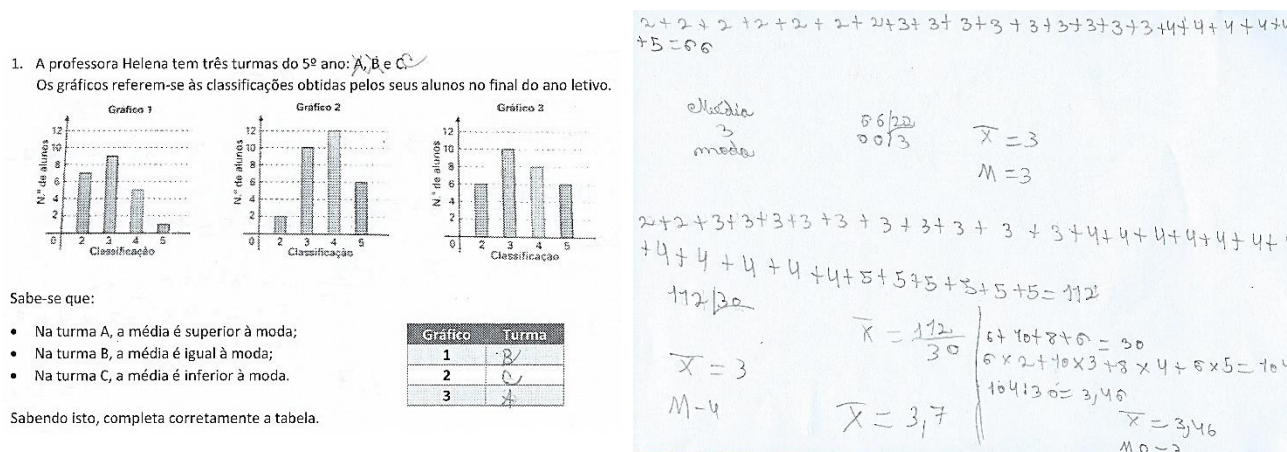 1. A professora Helena tem três turmas do 5º ano: A, B e C.
Os gráficos referem-se às classificações obtidas pelos seus alunos no final do ano letivo.
Gráfico 1
Gráfico 2
Gráfico 3
N.º de alunos
12
10
8
6
4
2
0 2 3 4 5
Classificação
N.º de alunos
12
10
8
6
4
2
0 2 3 4 5
Classificação
N.º de alunos
12
10
8
6
4
2
0 2 3 4 5
Classificação
Sabe-se que:
• Na turma A, a média é superior à moda;
• Na turma B, a média é igual à moda;
• Na turma C, a média é inferior à moda.
Gráfico Turma
1 B
2 C
3 A
Sabendo isto, completa corretamente a tabela.
2+2+2+2+2+2+2+3+3+3+3+3+3+3+3+3+4+4+4+4+4
+5=66
Média
3
moda
66|22
00|3
x̅ = 3
M = 3
2+2+3+3+3+3+3+3+3+3+3+3+4+4+4+4+4+4+
+4+4+4+4+4+4+5+5+5+5+5+5=112
112|30
x̅ = 3
M-4
x̅ = 112/30
x̅ = 3,7
6+10+8+6=30
6×2+10×3+8×4+6×5=104
104:30=3,46
x̅ = 3,46